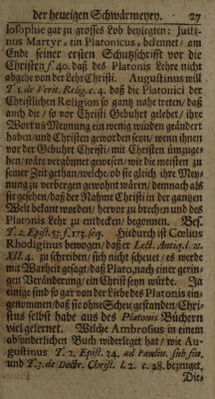 der heuigen Schwärmeyen. 27
losophie gar zu grosses Lob beylegten: Justi-
nus Martyr, ein Platonicus, bekennet / am
Ende seiner ersten Schutzschrifft vor die
Christen / f. 40. daß des Platonis Lehre nicht
abgehe von der Lehr Christi. Augustinus will
T. 1. de Verit. Relig. c. 4. daß die Platonici der
Christlichen Religion so gantz nahe treten / daß
auch die / so vor Christi Gebuhrt gelebet / ihre
Wort und Meynung ein wenig würden geändert
haben / und Christen geworden seyn / wenn ihnen
vor der Gebuhrt Christi / mit Christen umzuge-
hen / wäre vergönnet gewesen / wie die meisten zu
seiner Zeit gethan / welche / ob sie gleich ihre Mey-
nung zu verbergen gewohnt wären / dennoch als
sie gesehen / daß der Nahme Christi in der gantzen
Welt bekant worden / hervor zu brechen und des
Platonis Lehr zu entdecken / begonnen. Bes.
T. 2. Epist. 53. f. 173. seq. Hiedurch ist Cœlius
Rhodiginus bewogen / daß er Lect. Antiq. l. 21.
XII. 4. zu schreiben / sich nicht scheuet / es werde
mit Warheit gesagt / daß Plato, nach einer gerin-
gen Veränderung / ein Christ seyn würde. Ja
einige sind so gar von der Liebe des Platonis ein-
genommen / daß sie ohne Scheu gestanden / Chri-
stus selbst habe aus des Platonis Büchern
viel gelernet. Welche Ambrosius in einem
absonderlichen Buch widerleget hat / wie Au-
gustinus T. 2. Epist. 34. ad Paulin. sub fin.
und T. 3. de Doctr. Christ. l. 2. c. 28. bezeuget,
Die-